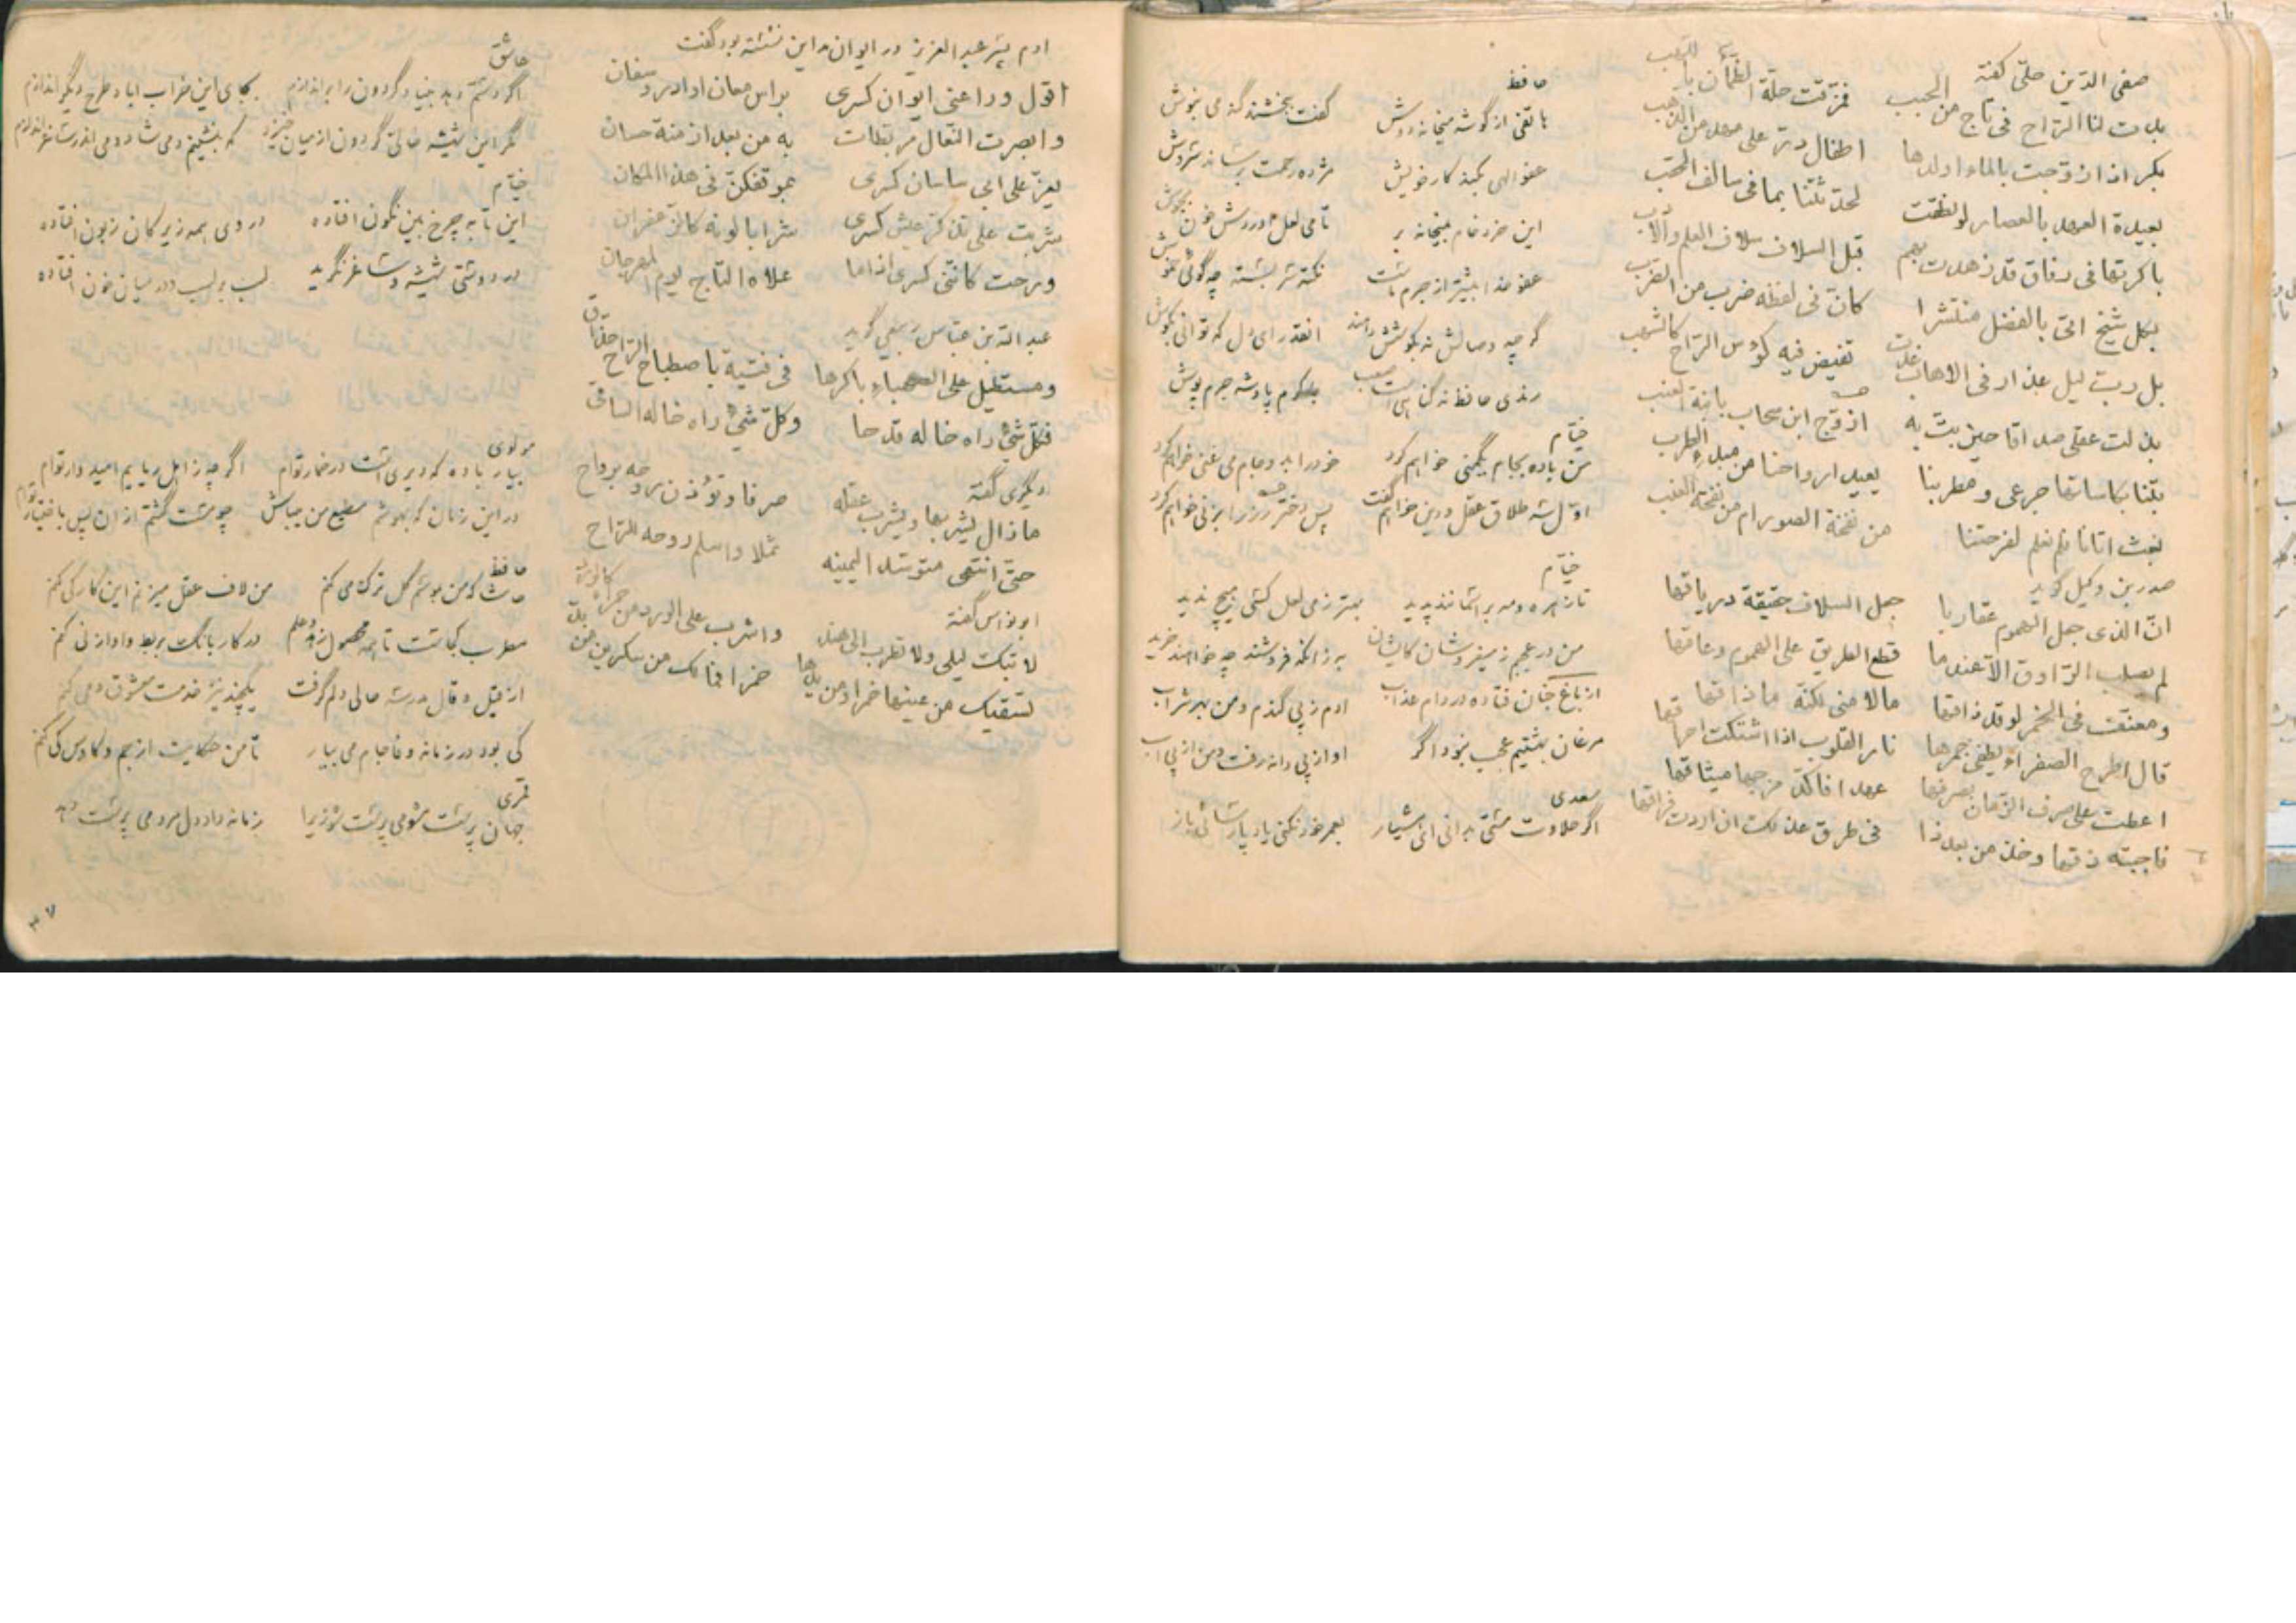 صفی الدین حلی گفته
بدت لنا الراح فی تاج من الحبب
فمزقت حلة الظلماء باللهب
بکر اذا زوجت بالماء اولدها
اطفال در علی مهد من الذهب
بعیدة العهد بالمعصار لو نطقت
لحدثتنا بما فی سالف الحقب
باکرتها فی رفاق قد زهت بهم
قبل السلاف سلاف العلم والادب
بکل شیخ اتی بالفضل متشرا
کان فی لفظه ضرب من الضرب
بل رب لیل غدا فی الاهاب غدت
تفیض فیه کؤس الراح کالشهب
بذلت عقلی صداقا حین بت به
ازوج ابن سحاب بابنة العنب
بتنا بکاساتها صرعی و مطربنا
یعید ارواحنا من مبدء الطرب
بعث اتانا فلم نعلم لفرحتنا
من نفخة الصور ام من نفخة القصب
صدر بن وکیل گوید
ان الذی جعل الهموم عقاربا
جعل السلاف حقیقة دریاقها
لم یصلب الراووق الا عندما
قطع الطریق علی الهموم وعاقها
ومعنف فی الخمر لو قد ذاقها
ما لامنی لکنه ما ذاقها
قال اطرح الصفراء یطفی جمرها
نار القلوب اذا اشتکت احراقها
اعطت علی صرف الزمان بصرفها
عهدا فاکد مزجها میثاقها
فاجبته ذقها وخذ من بعد ذا
فی طرق عذلک ان اردت فراقها
حافظ
هاتفی از گوشه میخانه دوش
گفت ببخشند گنه می بنوش
عفو الهی بکند کار خویش
مژده رحمت برساند سروش
این خرد خام بمیخانه بر
تا می لعل اوردش خون بجوش
عفو خدا بیشتر از جرم ماست
نکته سر بسته چه گوئی خموش
گرچه وصالش نه بکوشش دهند
انقدر ای دل که توانی بکوش
رندی حافظ نه گناهی است صعب
با کرم پادشه جرم پوش
خیام
من باده بجام یکمنی خواهم کرد
خود را بدو جام می غنی خواهم کرد
اول سه طلاق عقل و دین خواهم گفت
پس دختر رز را بزنی خواهم کرد
خیام
تا زهره و مه بر اسمانند پدید
بهتر ز می لعل کسی هیچ ندید
من در عجبم ز میفروشان کایشان
به زانکه فروشند چه خواهند خرید
از باغ جنان فتاده در دام عذاب
ادم ز پی گندم و من بهر شراب
مرغان بهشتیم عجب نبود اگر
او از پی دانه رفت و من از پی اب
سعدی
اگر حلاوت مستی بدانی ای هشیار
بعمر خود نکنی یاد پارسائی باز
ادم پسر عبد العزیز در ایوان مداین نشسته بود گفت
اقول وراعنی ایوان کسری
براس معان او ادروسفان
وابصرت البغال مربطات
به من بعد ازمنة حسان
یعز علی ابی ساسان کسری
بموقفکن فی هذا المکان
شربت علی تذکر عیش کسری
شرابا لونه کالزعفران
ورحت کاننی کسری اذا ما
علاه التاج یوم المهرجان
عبد الله بن عباس ربیعی گوید
ومستطیل علی الصهباء باکرها
فی فتیة باصطباح الراح حذاق
فکل شیء راه خاله قدحا
وکل شیء راه خاله الساقی
دیگری گفته
ما زال یشربها ویشرب عقله
صرفا وتؤذن روحه برواح
حتی انثنی متوسدا لیمینه
ثملا واسلم روحه للراح
ابونواس گفته
لا تبک لیلی ولا تطرب الی هند
واشرب علی الورد من حمراء کالورد
تسقیک من عینها خمرا ومن یدها
خمرا فمالک من سکرین من بد
عاشق
اگر دستم رسد بنیاد گردون را براندازم
بجای این خراب اباد طرح دیگر اندازم
مگر این شیشه خالی گردون از میان خیزد
که بنشینم و می شادی اندر ساغر اندازم
خیام
این نه به چرخ بین نگون افتاده
در وی همه زیرکان زبون افتاده
در دوستی شیشه و ساغر نگرید
لب بر لب و در میان خون افتاده
مولوی
بیار باده که دیری است در خمار توام
اگرچه زاهل ریایم امیدوار توام
در این زمان که بهوشم مطیع من میباش
چو مست گشتم از ان پس باختیار توام
حافظ
حاشا که من بموسم گل ترک می کنم
من لاف عقل میزنم این کار کی کنم
مطرب کجاست تا همه محصول زهد و علم
در کار بانگ بربط و اواز نی کنم
از قیل و قال مدرسه حالی دلم گرفت
یکچند نیز خدمت معشوق و می کنم
کی بود در زمانه وفا جام می بیار
تا من حکایت از جم و کاوس کی کنم
قمری
جهان پرست مشو می پرست شو زیرا
زمانه داد دل مرد می پرست دهد
۳۷